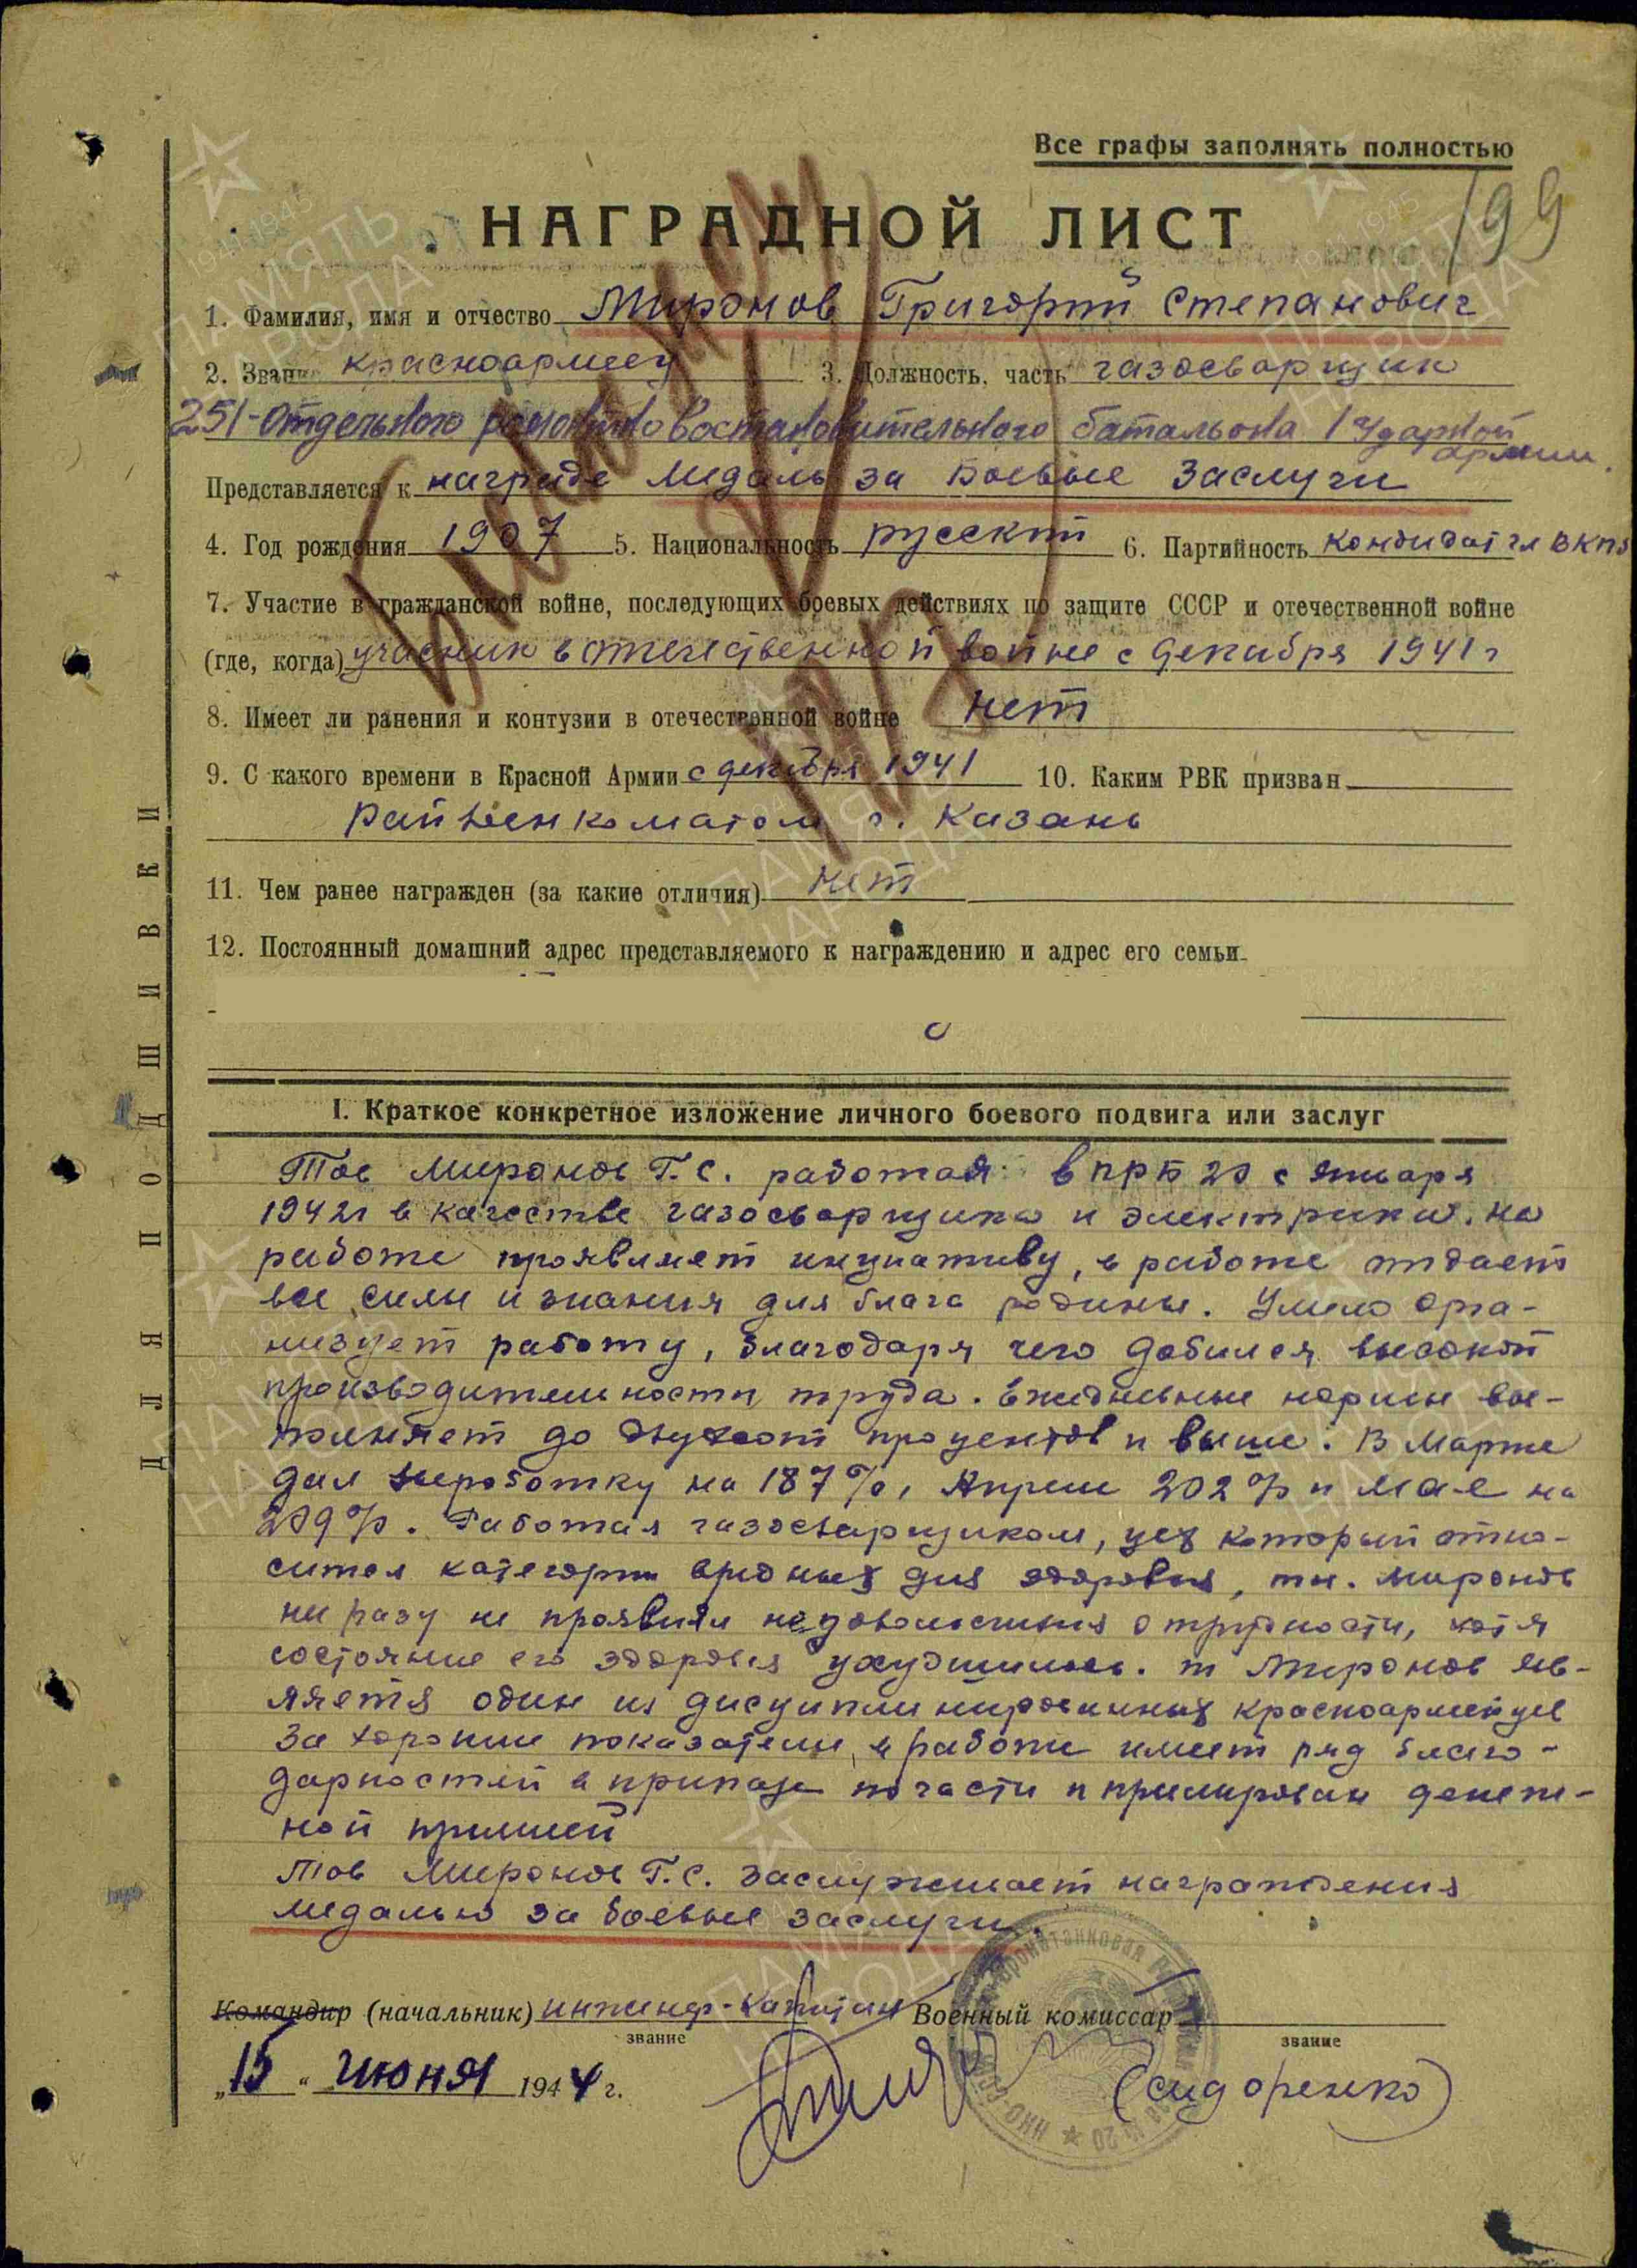 Все графы заполнять полностью
199
НАГРАДНОЙ ЛИСТ
1. Фамилия, имя и отчество Миронов Григорий Степанович
2. Звание красноармеец 3. Должность, часть газосварщик
251-отдельного ремонтно востановительного батальона 1 Ударной
армии.
Представляется к награде медаль за Боевые Заслуги
4. Год рождения 1907 5. Национальность русский 6. Партийность кондидат чл ВКПб
7. Участие в гражданской войне, последующих боевых действиях по защите СССР и отечественной войне
(где, когда) учасник в отечественной войне с декабря 1941 г
8. Имеет ли ранения и контузии в отечественной войне нет
9. С какого времени в Красной Армии с декабря 1941 10. Каким РВК призван
Райвенкоматом г. Казань
11. Чем ранее награжден (за какие отличия) нет
12. Постоянный домашний адрес представляемого к награждению и адрес его семьи
I. Краткое конкретное изложение личного боевого подвига или заслуг
Тов Миронов Г.С. работая в ПРБ 20 с января
1942 г в качестве газосварщика и электрика. на
работе проявляет инциативу, в работе отдает
все силы и знания для блага родины. Умело орга-
низует работу, благодаря чего добился высокой
производительности труда. Ежедневные нормы вы-
полняет до двухсот процентов и выше. В Марте
дал выроботку на 187%, Апреле 202% и мае на
209%. Работая газосварщиком, цех который отно-
сится категории вредных для здоровья, тов. Миронов
ни разу не проявил недовольствия о трудности, хотя
состояние его здоровья ухудшилось. т Миронов яв-
ляется один из дисциплинированных красноармейцев
За хорошие показатели в работе имеет ряд благо-
дарностей в приказе по части и примирован денеж-
ной примией
Тов Миронов Г.С. заслуживает награждения
медалью за боевые заслуги.
Командир (начальник) инженер-капитан Военный комиссар
звание звание
„15“ июня 1944 г.
(Сидоренко)
ДЛЯ ПОДШИВКИ
ПАМЯТЬ НАРОДА
1941-1945